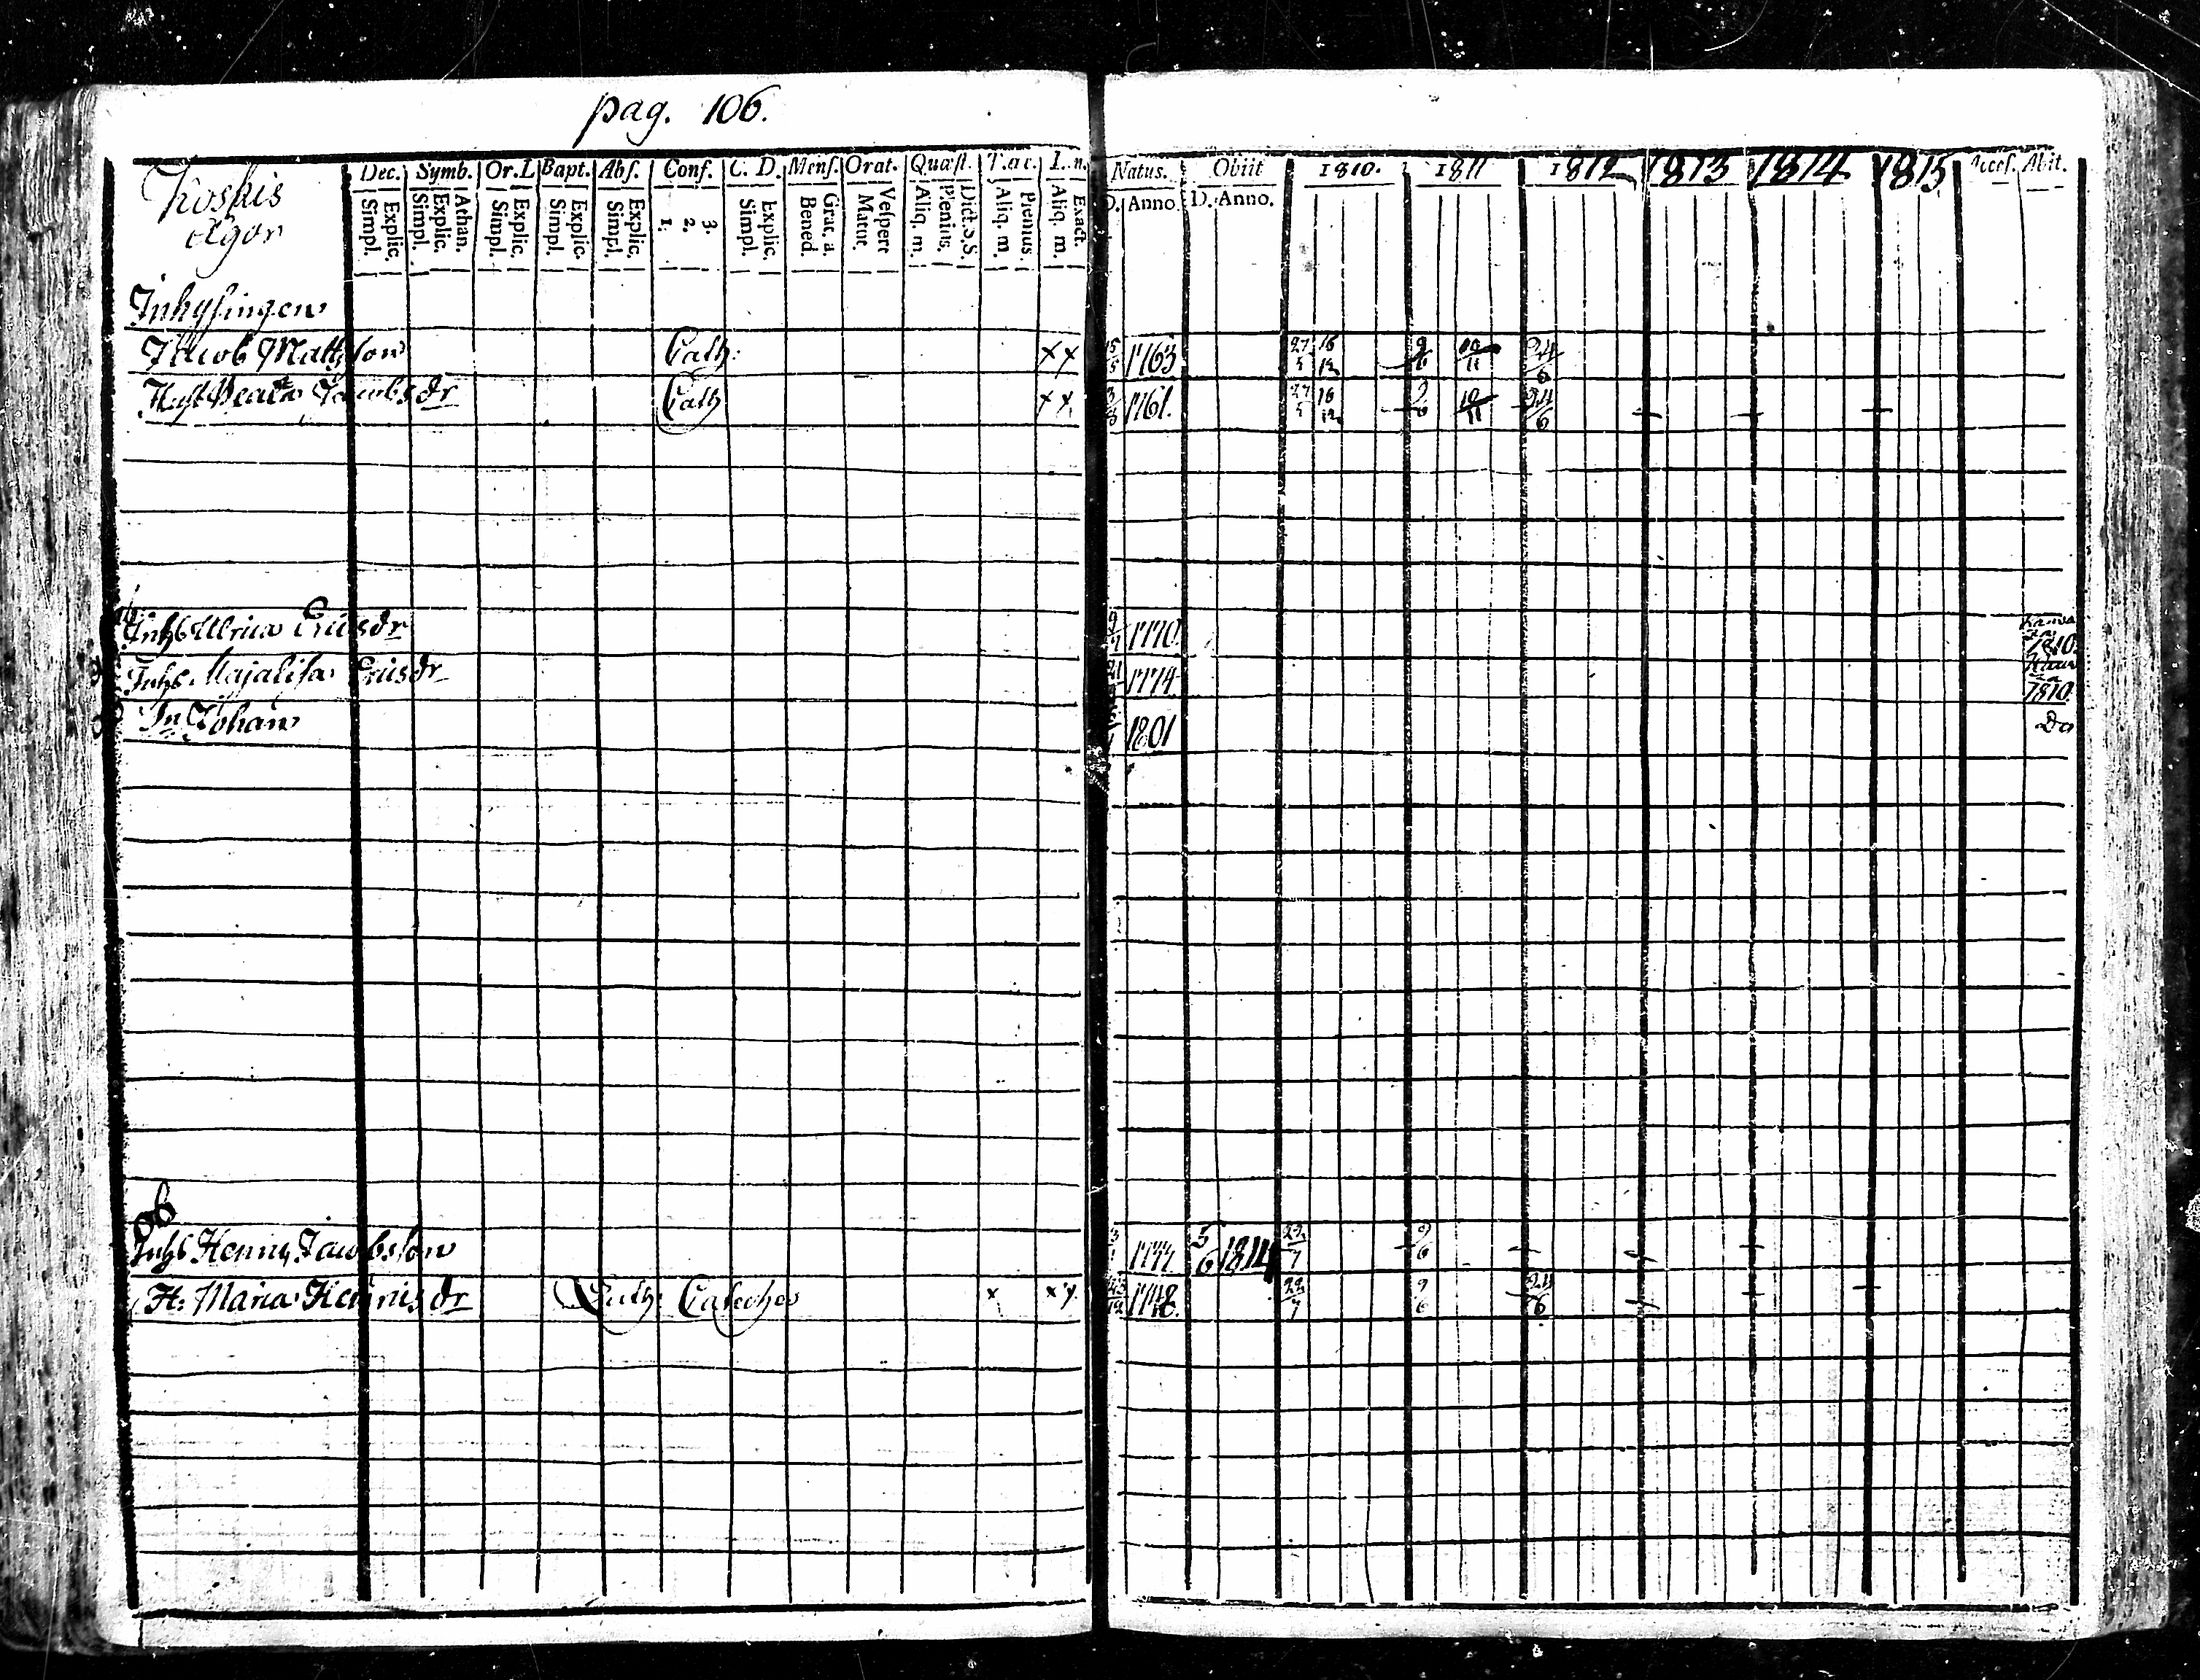 pag. 106.
Koskis
ägor
Dec. Symb. Or. L Bapt. Abs. Conf. C. D. Mens. Orat. Quæst. T. œc. Natus. Obiit 1810. 1811 1812 1813 1814 1815 Acces. Abit.
Explic. Simpl. Athan. Explic. Simpl. Explic. Simpl. Explic. Simpl. Explic. Simpl. 3. 2. 1. Explic. Simpl. Grat. a. Bened. Vespert Matut. Dict. S. S. Plenius. Aliq. m. Plenius. Aliq. m. Exact. Aliq. m. D. Anno. D. Anno.
Inhysingen
Jacob Matsson Cath: x x 1763 27/5 16/12 9/6 10/11 24/6
Hust Beata Jacobsdr Cath x x 1761. 27/5 16/12 9/6 10/11 24/6
Inhs Ulrica Ericsdr 1770 1810
Inhs. Majalisa Ericsdr 1774 1810
Johan 1801 Do
Inhs Henric Jacobsson 5/6 1814 22/7 9/6
H: Maria Henricsdr Cath: Cateches x x x 1748. 22/7 9/6 24/6